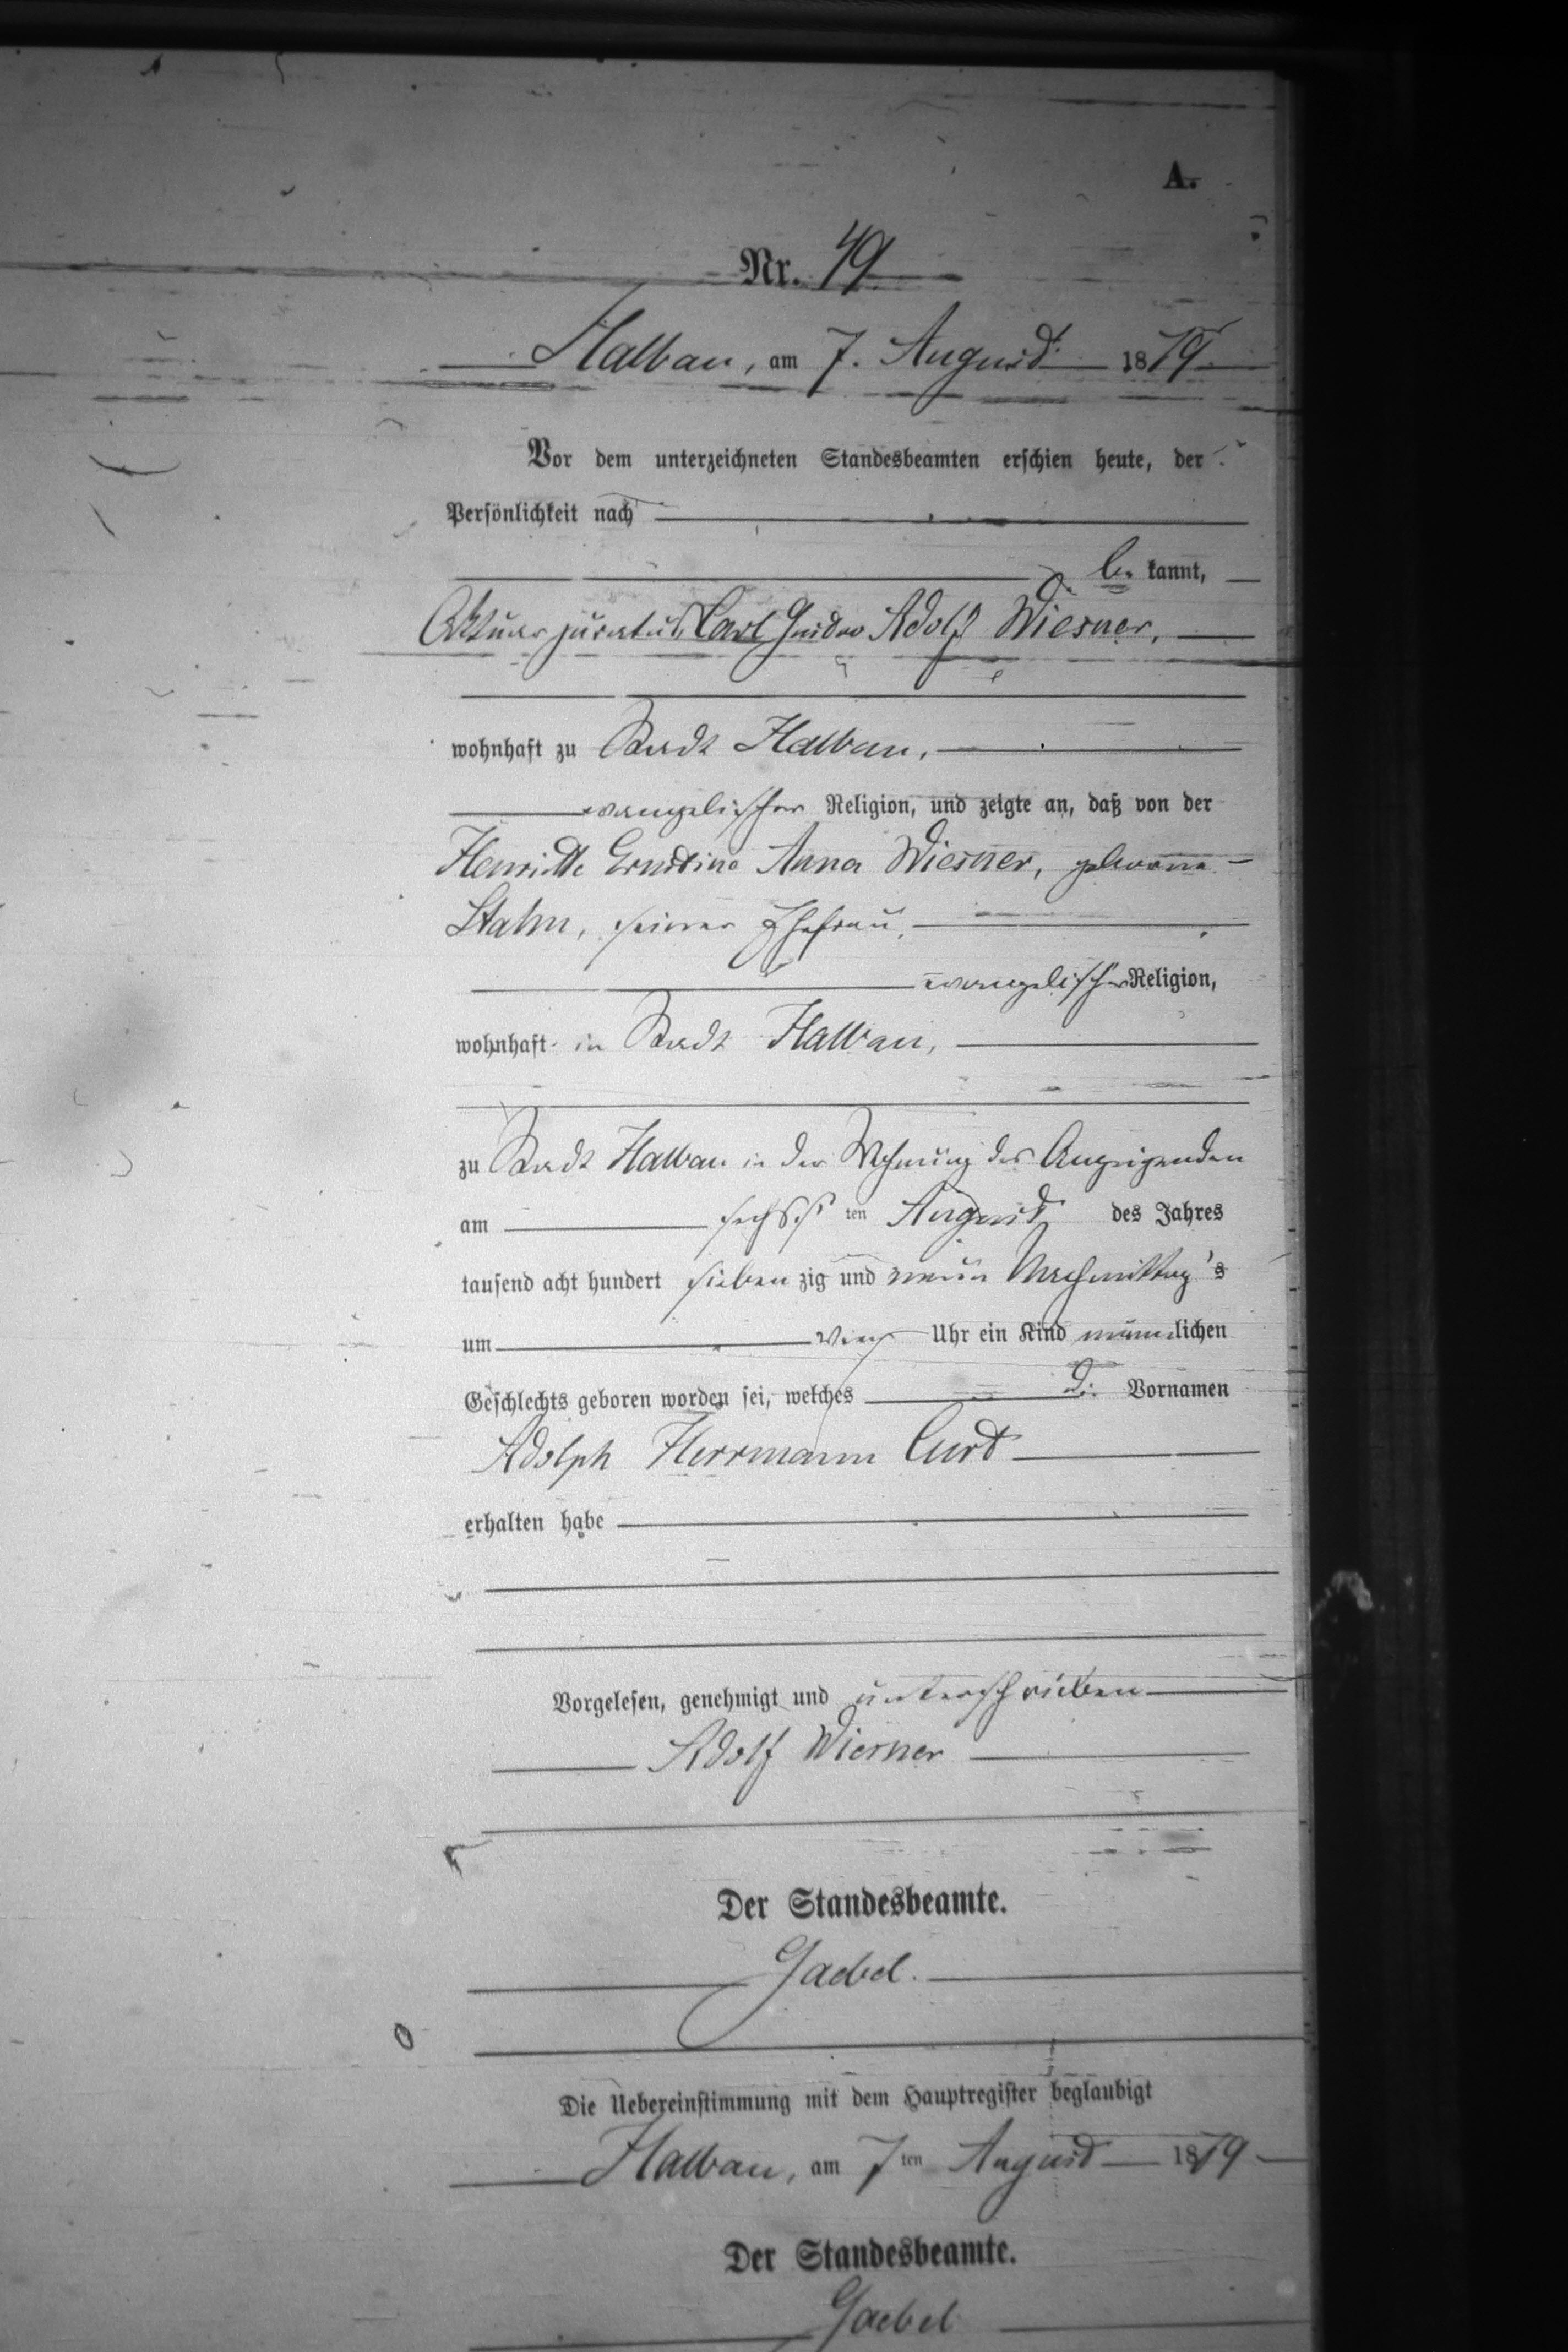 A.
Nr. 49
Halbau, am 7. August 1879.
Vor dem unterzeichneten Standesbeamten erschien heute, der
Persönlichkeit nach
be kannt,
Aktuar juratus Carl Guido Adolf Wiesner,
wohnhaft zu Stadt Halbau,
evangelischer Religion, und zeigte an, daß von der
Henriette Ernstine Anna Wiesner, geborene
Stahn, seiner Ehefrau,
evangelischer Religion,
wohnhaft in Stadt Halbau,
zu Stadt Halbau in der Wohnung des Anzeigenden
am sechsten August des Jahres
tausend acht hundert siebenzig und neun Nachmittag's
um vier Uhr ein Kind männlichen
Geschlechts geboren worden sei, welches die Vornamen
Adolph Herrmann Curt
erhalten habe
Vorgelesen, genehmigt und unterschrieben
Adolf Wiesner
Der Standesbeamte.
Gaebel.
Die Uebereinstimmung mit dem Hauptregister beglaubigt
Halbau, am 7ten August 1879
Der Standesbeamte.
Gaebel